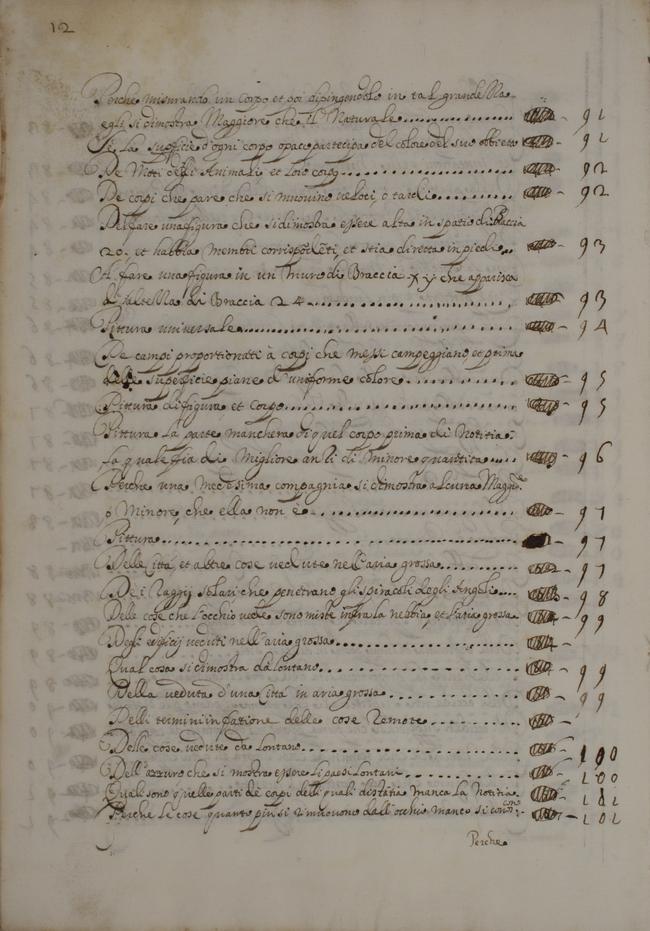 12
Perche misurando un corpo et poi dipingendolo in tal grandezza
egli si dimostra Maggiore che Il Naturale 91
Se La superficie d'ogni corpo opaco partecipa del colore del suo obbietto 91
De Moti degli Animali et loro corso 92
De corpi che pare che si muovino veloci, o tardi 92
Del fare una figura che si dimostra essere alta in spatio di Braccia
20. et habbia Membri corrispondenti, et stia diretta in piedi 93
A fare una figura in un Muro di Braccia che apparisca
d'altezza di Braccia 24 93
Pittura universale 94
De campi proportionati à corpi che messi campeggiano et prima
delle superficie piane d'uniforme colore 95
Pittura di figura et Corpo 95
Pittura La parte mancherà di quel corpo prima di Notitia
la quale fia di Migliore anzi di Minore quantita 96
Perche una Medesima compagnia si dimostra alcuna Maggio.
o Minore, che ella non è 97
Pittura 97
Delle Città, et altre cose vedute nell'aria grossa 97
De i Raggij solari che penetrano gli spiracoli degli Angoli 98
Delle cose che l'occhio vede sono miste infra la nebbia, et l'aria grossa 99
Degli edificij veduti nell'aria grossa
Qual cosa si dimostra da Lontano 99
Della veduta d'una Città in aria grossa 99
Delli termini delle cose Remote
Delle cose vedute da Lontano 100
Dell'azzuro che si mostra essere li paesi Lontani 100
Quai sono quelle parti de corpi delli quali distatia manca La Notitia 101
Perche Le cose quanto piu si rimuovono dall'occhio manco si 101
Perche